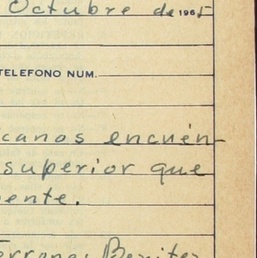 Octubre de 1965
TELEFONO NUM.
canos encuén-
superior que
ente.
Benitez